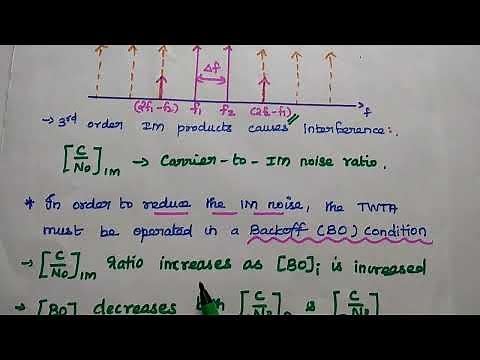 Δf
(2f₁-f₂) f₁ f₂ (2f₂-f₁) f
→ 3rd order IM products causes interference.
[C/N₀]IM → Carrier-to-IM noise ratio.
* In order to reduce the IM noise, the TWTA
must be operated in a Backoff (BO) condition
→ [C/N₀]IM ratio increases as [BO]i is increased
→ [BO] decreases